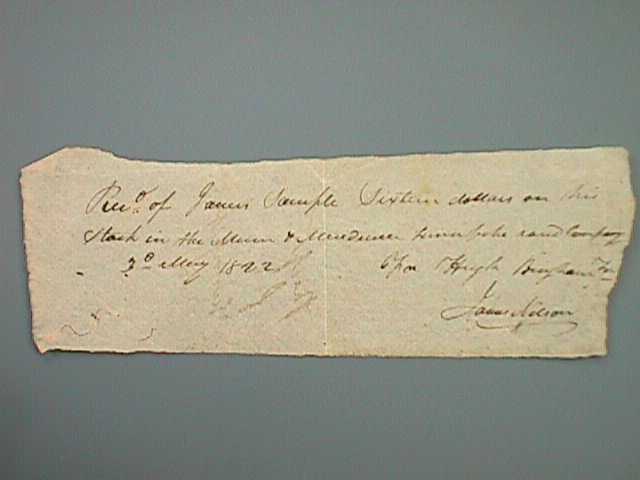 Recd. of James Sample Sixteen dollars on his
Stock in the & turnpike road Company
3d May 1822 for Hugh Bingham Tr
James Nelson